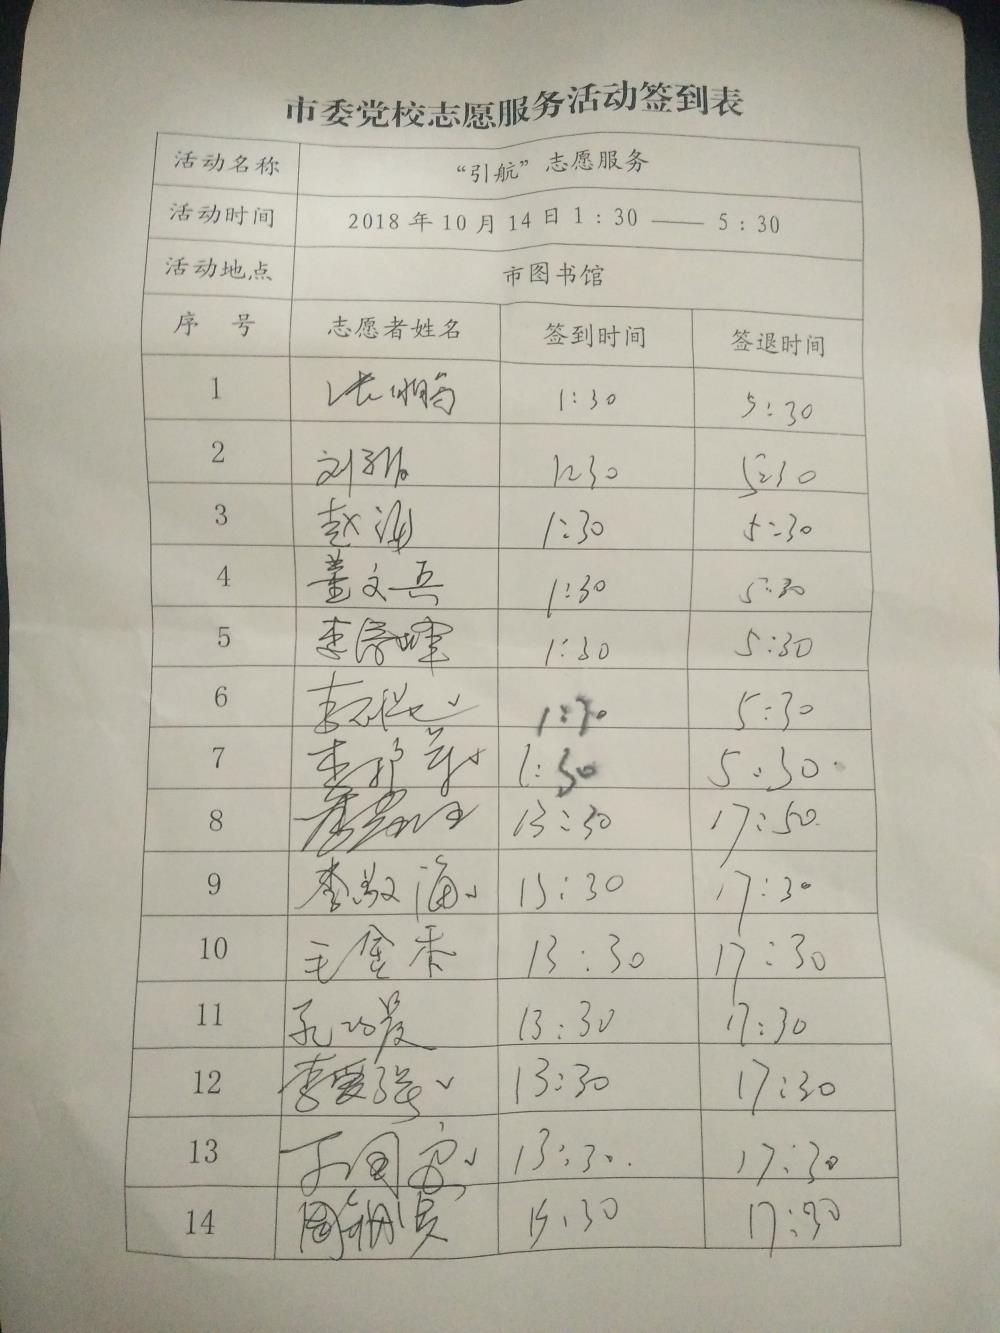 市委党校志愿服务活动签到表
活动名称 “引航”志愿服务
活动时间 2018年10月14日1:30——5:30
活动地点 市图书馆
序 号 志愿者姓名 签到时间 签退时间
1 1:30 5:30
2 刘 1:30 5:30
3 赵海 1:30 5:30
4 董文兵 1:30 5:30
5 李 1:30 5:30
6 李 1:30 5:30
7 李 1:30 5:30
8 13:30 17:50
9 李敬海 13:30 17:30
10 毛金香 13:30 17:30
11 孔 13:30 17:30
12 李爱强 13:30 17:30
13 13:30 17:30
14 周 17:30